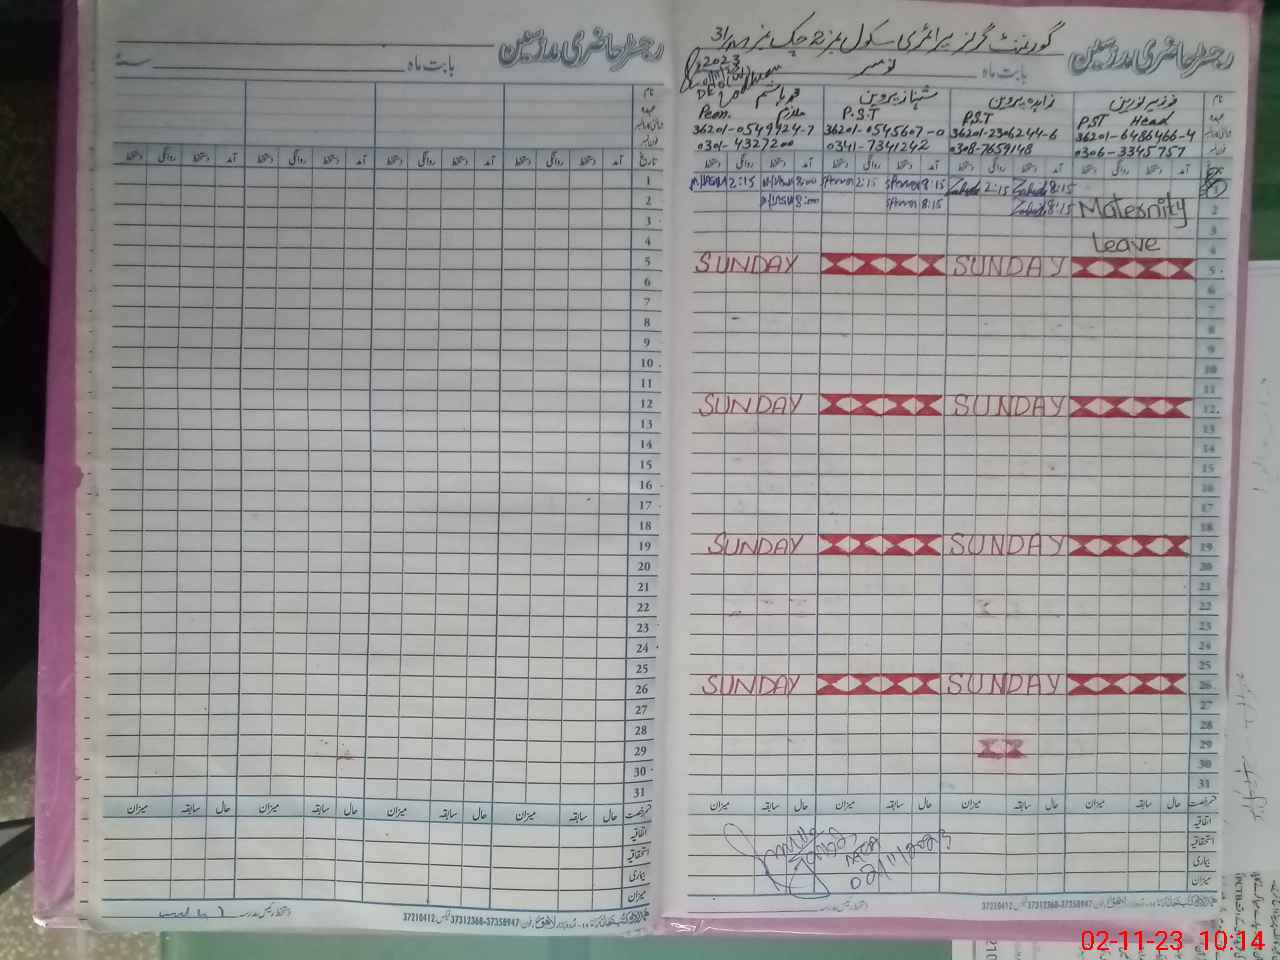 رجسٹر حاضری مدرسین
بابت ماہ
نام
عہدہ
تاریخ
آمد دستخط روانگی دستخط آمد دستخط روانگی دستخط آمد دستخط روانگی دستخط آمد دستخط روانگی دستخط
1
2
3
4
5
6
7
8
9
10
11
12
13
14
15
16
17
18
19
20
21
22
23
24
25
26
27
28
29
30
31
حال سابقہ میزان حال سابقہ میزان حال سابقہ میزان حال سابقہ میزان
اتفاقیہ
استحقاقیہ
بیماری
میزان
37210412 37312368-37358947
رجسٹر حاضری مدرسین
گورنمنٹ گرلز پرائمری سکول نمبر 2 چک نمبر
بابت ماہ نومبر 2023
نام فوزیہ نورین زاہدہ پروین شہناز پروین
PST Head P.S.T P.S.T Peon. ملازم
36201-6486466-4 36201-2306244-6 36201-0545607-0 36201-0549924-7
0306-3345757 0308-7659148 0341-7341242 0301-4327200
آمد دستخط روانگی دستخط آمد دستخط روانگی دستخط آمد دستخط روانگی دستخط آمد دستخط روانگی دستخط
1 8:15 2:15 8:15 2:15 8:00 2:15
2 Maternity 8:15 8:15 8:00
3
4 Leave
5 SUNDAY SUNDAY
6
7
8
9
10
11
12 SUNDAY SUNDAY
13
14
15
16
17
18
19 SUNDAY SUNDAY
20
21
22
23
24
25
26 SUNDAY SUNDAY
27
28
29
30
31
حال سابقہ میزان حال سابقہ میزان حال سابقہ میزان حال سابقہ میزان
اتفاقیہ
استحقاقیہ
بیماری
میزان
02/11/2023
37210412 37312368-37358947
02-11-23 10:14